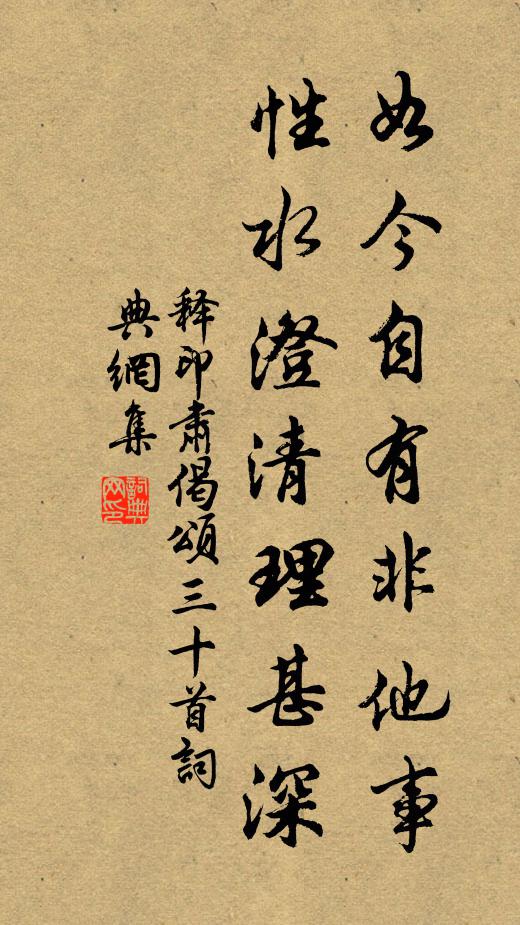 如今自有非他事
性水澄清理甚深
释印肃偈頌三十首詞
典網集
詞典网印